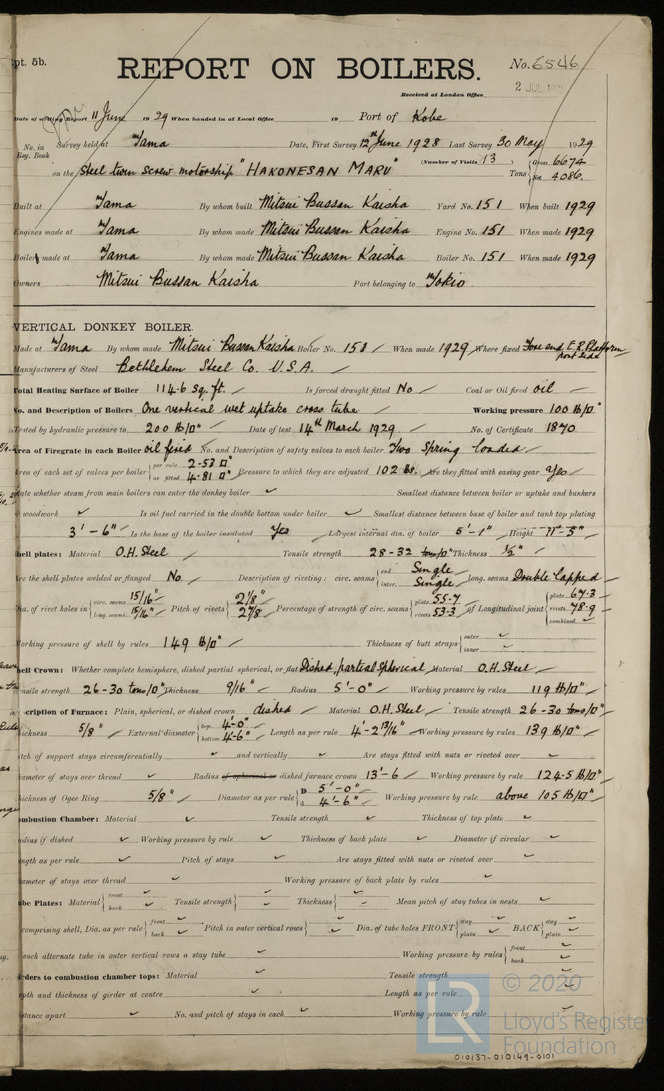 pt. 5b.
REPORT ON BOILERS.
No. 6546
2 JUL 1929
Received at London Office
Date of writing Report 11 June 1929 When handed in at Local Office 19 Port of Kobe
No. in Reg. Book Survey held at Tama Date, First Survey 12th June 1928 Last Survey 30 May 1929
(Number of Visits 13) Tons Gross 6674 Net 4086
on the Steel twin screw motorship "HAKONESAN MARU"
Built at Tama By whom built Mitsui Bussan Kaisha Yard No. 151 When built 1929
Engines made at Tama By whom made Mitsui Bussan Kaisha Engine No. 151 When made 1929
Boiler made at Tama By whom made Mitsui Bussan Kaisha Boiler No. 151 When made 1929
Owners Mitsui Bussan Kaisha Port belonging to Tokio
VERTICAL DONKEY BOILER.
Made at Tama By whom made Mitsui Bussan Kaisha Boiler No. 151 When made 1929 Where fixed Fore end E.R. Platform port side
Manufacturers of Steel Bethlehem Steel Co. U.S.A.
Total Heating Surface of Boiler 114.6 sq. ft. Is forced draught fitted No Coal or Oil fired oil
No. and Description of Boilers One vertical wet uptake cross tube Working pressure 100 lb/□"
Tested by hydraulic pressure to 200 lb/□" Date of test 14th March 1929 No. of Certificate 1870
Area of Firegrate in each Boiler oil fired No. and Description of safety valves to each boiler Two Spring loaded
Area of each set of valves per boiler per rule 2.53 □" as fitted 4.81 □" Pressure to which they are adjusted 102 lbs. Are they fitted with easing gear Yes
State whether steam from main boilers can enter the donkey boiler ✓ Smallest distance between boiler or uptake and bunkers
or woodwork ✓ Is oil fuel carried in the double bottom under boiler ✓ Smallest distance between base of boiler and tank top plating
3'-6" Is the base of the boiler insulated Yes Largest internal dia. of boiler 5'-1" Height 11'-5"
Shell plates: Material O.H. Steel Tensile strength 28-32 tons/□" Thickness 1/2"
Are the shell plates welded or flanged No Description of riveting: circ. seams end Single inter. Single long. seams Double Lapped
Dia. of rivet holes in circ. seams 15/16" long. seams 15/16" Pitch of rivets 2 1/8" 2 7/8" Percentage of strength of circ. seams plate 55.7 rivets 53.3 of Longitudinal joint plate 67.3 rivets 78.9 combined ✓
Working pressure of shell by rules 149 lb/□" Thickness of butt straps outer ✓ inner ✓
Shell Crown: Whether complete hemisphere, dished partial spherical, or flat Dished, partial Spherical Material O.H. Steel
Tensile strength 26-30 tons/□" Thickness 9/16" Radius 5'-0" Working pressure by rules 119 lb/□"
Description of Furnace: Plain, spherical, or dished crown dished Material O.H. Steel Tensile strength 26-30 tons/□"
Thickness 5/8" External diameter top 4'-0" bottom 4'-6" Length as per rule 4'-2 13/16" Working pressure by rules 139 lb/□"
Pitch of support stays circumferentially ✓ and vertically ✓ Are stays fitted with nuts or riveted over ✓
Diameter of stays over thread ✓ Radius of spherical or dished furnace crown 13'-6 Working pressure by rule 124.5 lb/□"
Thickness of Ogee Ring 5/8" Diameter as per rule D 5'-0" d 4'-6" Working pressure by rule above 105 lb/□"
Combustion Chamber: Material ✓ Tensile strength ✓ Thickness of top plate ✓
Radius if dished ✓ Working pressure by rule ✓ Thickness of back plate ✓ Diameter if circular ✓
Length as per rule ✓ Pitch of stays ✓ Are stays fitted with nuts or riveted over ✓
Diameter of stays over thread ✓ Working pressure of back plate by rules ✓
Tube Plates: Material front ✓ back ✓ Tensile strength ✓ Thickness ✓ Mean pitch of stay tubes in nests ✓
comprising shell, Dia. as per rule front ✓ back ✓ Pitch in outer vertical rows ✓ Dia. of tube holes FRONT stay ✓ plain ✓ BACK stay ✓ plain ✓
each alternate tube in outer vertical rows a stay tube ✓ Working pressure by rules front ✓ back ✓
Girders to combustion chamber tops: Material ✓ Tensile strength ✓
Depth and thickness of girder at centre ✓ Length as per rule ✓
Distance apart ✓ No. and pitch of stays in each ✓ Working pressure by rule ✓
LR © 2020
Lloyd's Register
Foundation
010137-010149-0101